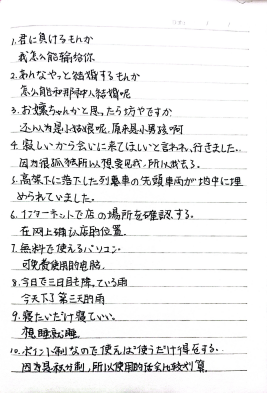 1.君に負けるもんか
我怎么能輸给你
2.あんなやっと結婚するもんか
怎么能和那种人结婚呢
3.お嬢ちゃんかと思ったら坊やですか
还以为是小姑娘呢，原来是小男孩啊
4.寂しいから会いに来てほしいと言われ、行きました。
因为很孤独所以想要见我，所以我去了。
5.高架下に落下した列車の先頭車両が地中に埋
められていました。
6.インターネットで店の場所を確認する。
在网上确认店的位置
7.無料で使えるパソコン
可免费使用的电脑
8.今日で三日目も降っている雨
今天下了第三天的雨
9.寝たいだけ寝ていい。
想睡就睡
10.ポイント制なので使えば使うだけ得をする。
因为是积分制，所以使用的话会比较划算